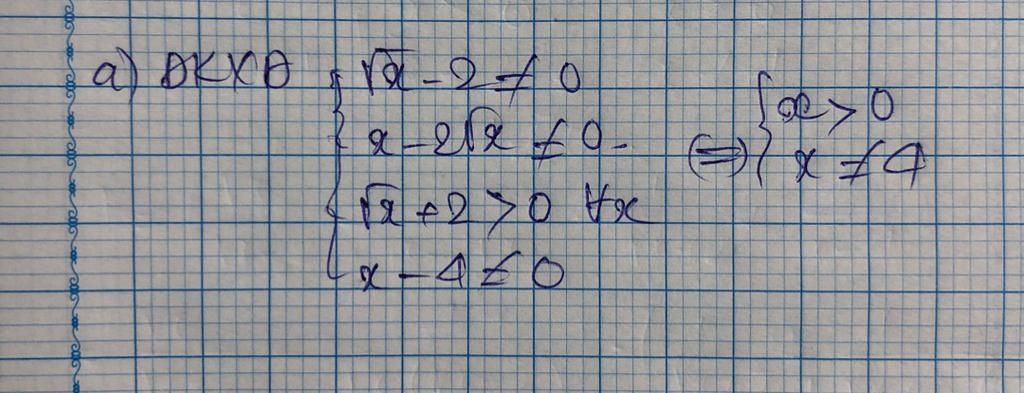 a) ĐKXĐ { √x - 2 ≠ 0
x - 2√x ≠ 0
√x + 2 > 0 ∀x
x - 4 ≠ 0
(=) { x > 0
x ≠ 4